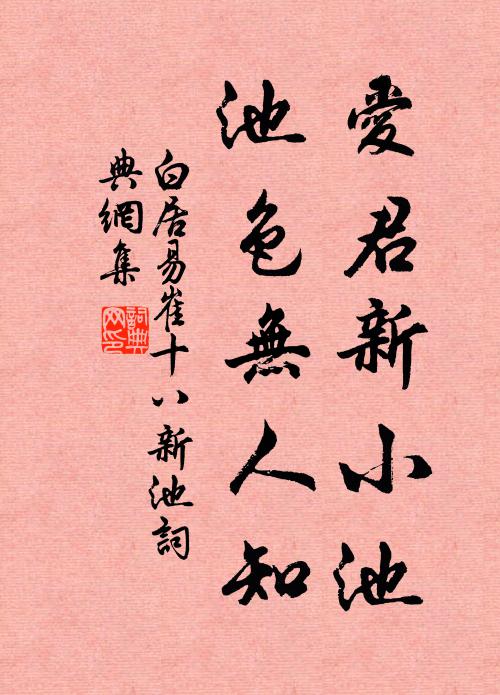 愛君新小池
池色無人知
白居易崔十八新池詞
典網集
詞典
网印